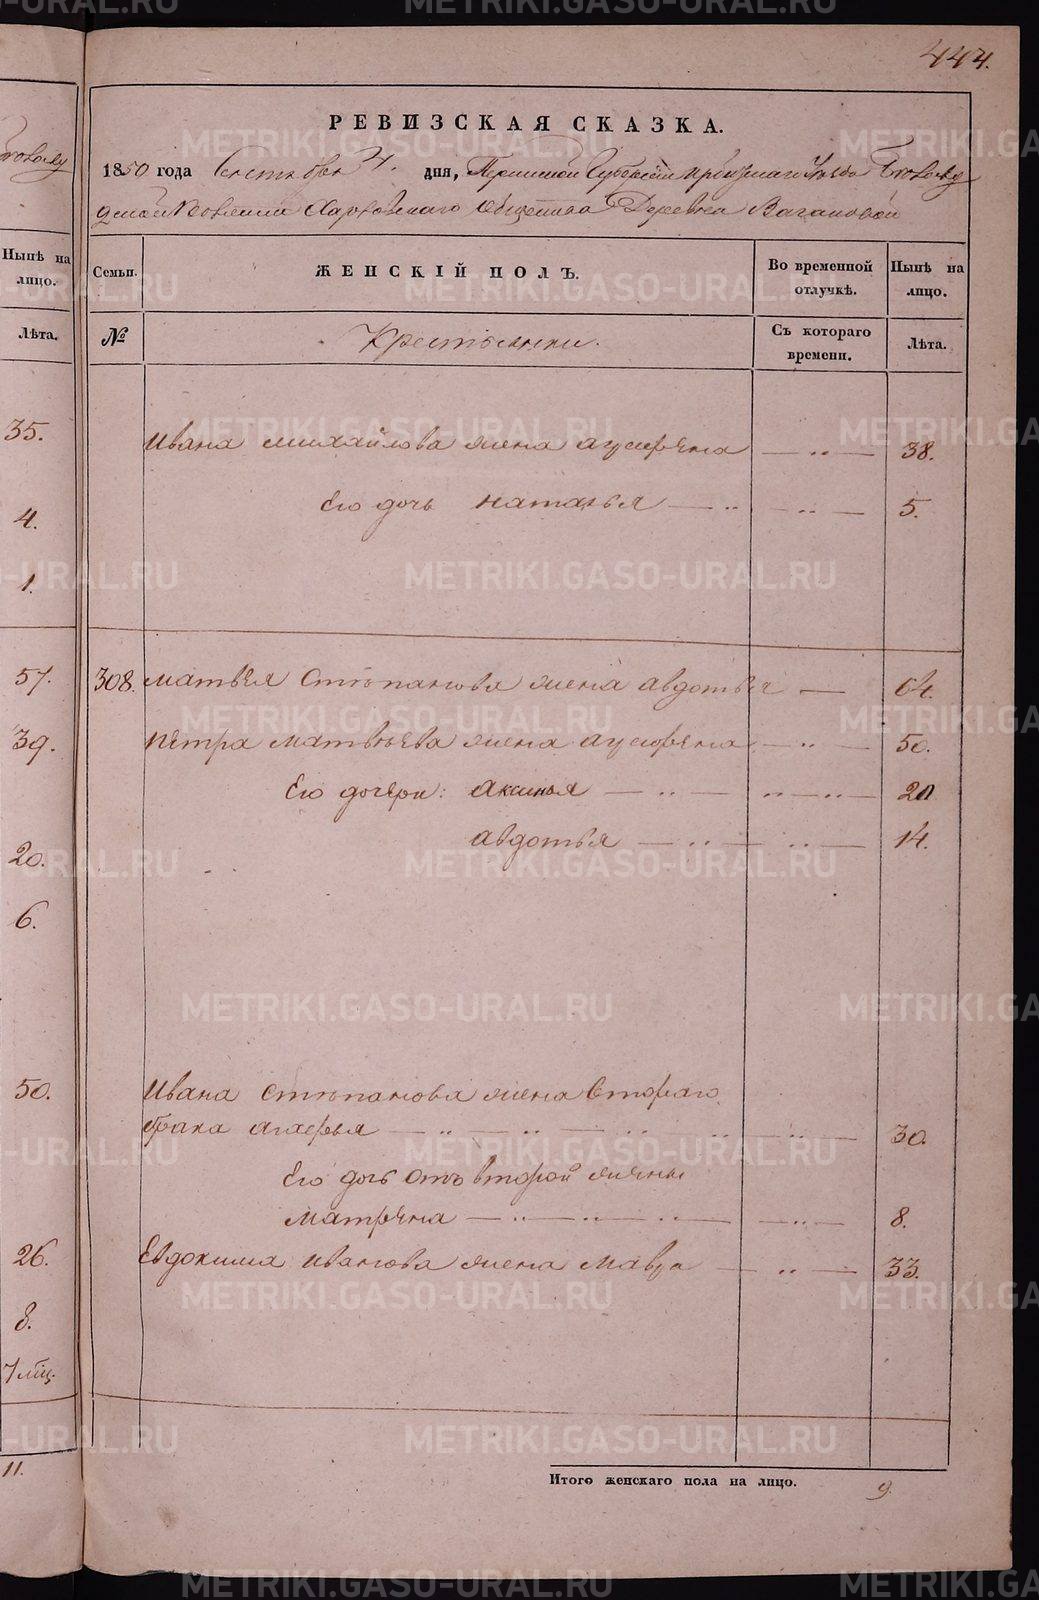 444.
РЕВИЗСКАЯ СКАЗКА.
1850 года Сентября дня, Пермской Губернии Ирбитскаго Уезда
Харловскаго Общества Деревни Вагановой
Ныпѣ на лицо.
Семьи.
ЖЕНСКІЙ ПОЛЪ.
Во временной отлучкѣ.
Нынѣ на лицо.
Лѣта.
№
Крестьянки.
Съ котораго времени.
Лѣта.
35.
Ивана Михайлова жена Ауфрѣна — „ — 38.
4.
Его дочь Наталья — „ — „ — 5.
1.
57.
308. Матвѣя Степанова жена Авдотья — 64.
39.
Петра Матвѣева жена — „ — 50.
Его дочери: Аксинья — „ — „ — „ — 20
Авдотья — „ — „ — 14.
20.
6.
50.
Ивана Степанова жена втораго
брака — „ — „ — „ — „ — „ — 30.
Его дочь отъ второй жены
Матрена — „ — „ — „ — „ — 8.
26.
Евдокима Иванова жена Мавра — „ — 33.
8.
7 мѣц.
11.
Итого женскаго пола на лицо. 9.
METRIKI.GASO-URAL.RU